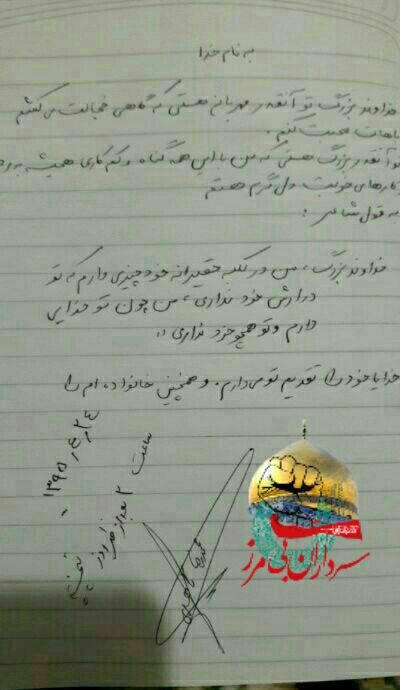 به نام خدا
خداوند بزرگ تو آنقدر مهربانی هستی که گاهی خجالت می‌کشم
باهات صحبت کنم.
تو آنقدر بزرگ هستی که من با این همه گناه و کم کاری همیشه به
کارهای خوبت دل گرم هستم
به قول شاعر:
خداوند بزرگ، من در کلبه حقیرانه خود چیزی دارم که تو
در ارش خود نداری، من چون تو خدایی
دارم و تو همچو خود نداری
خدایا خود را تقدیم تو می‌دارم. و همچنین خانواده‌ام را
ساعت ۲ بعد از ظهر روز
۱۳۹۵٫۴٫۲۴
سرداران بی مرز